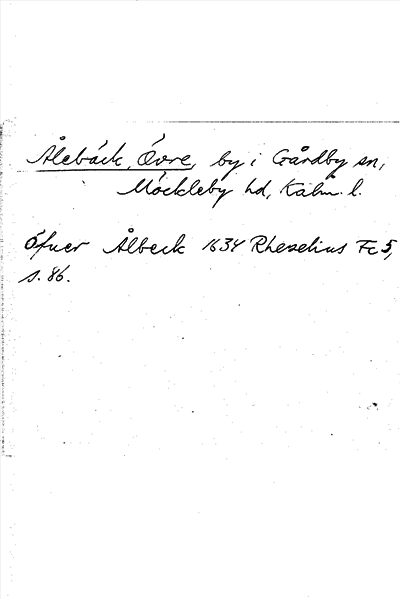 Ålebäck, Övre, by i Gårdby sn,
Möckleby hd, Kalm. l.
Öfuer Ålbeck 1634 Rhezelius Fc 5,
s. 86.